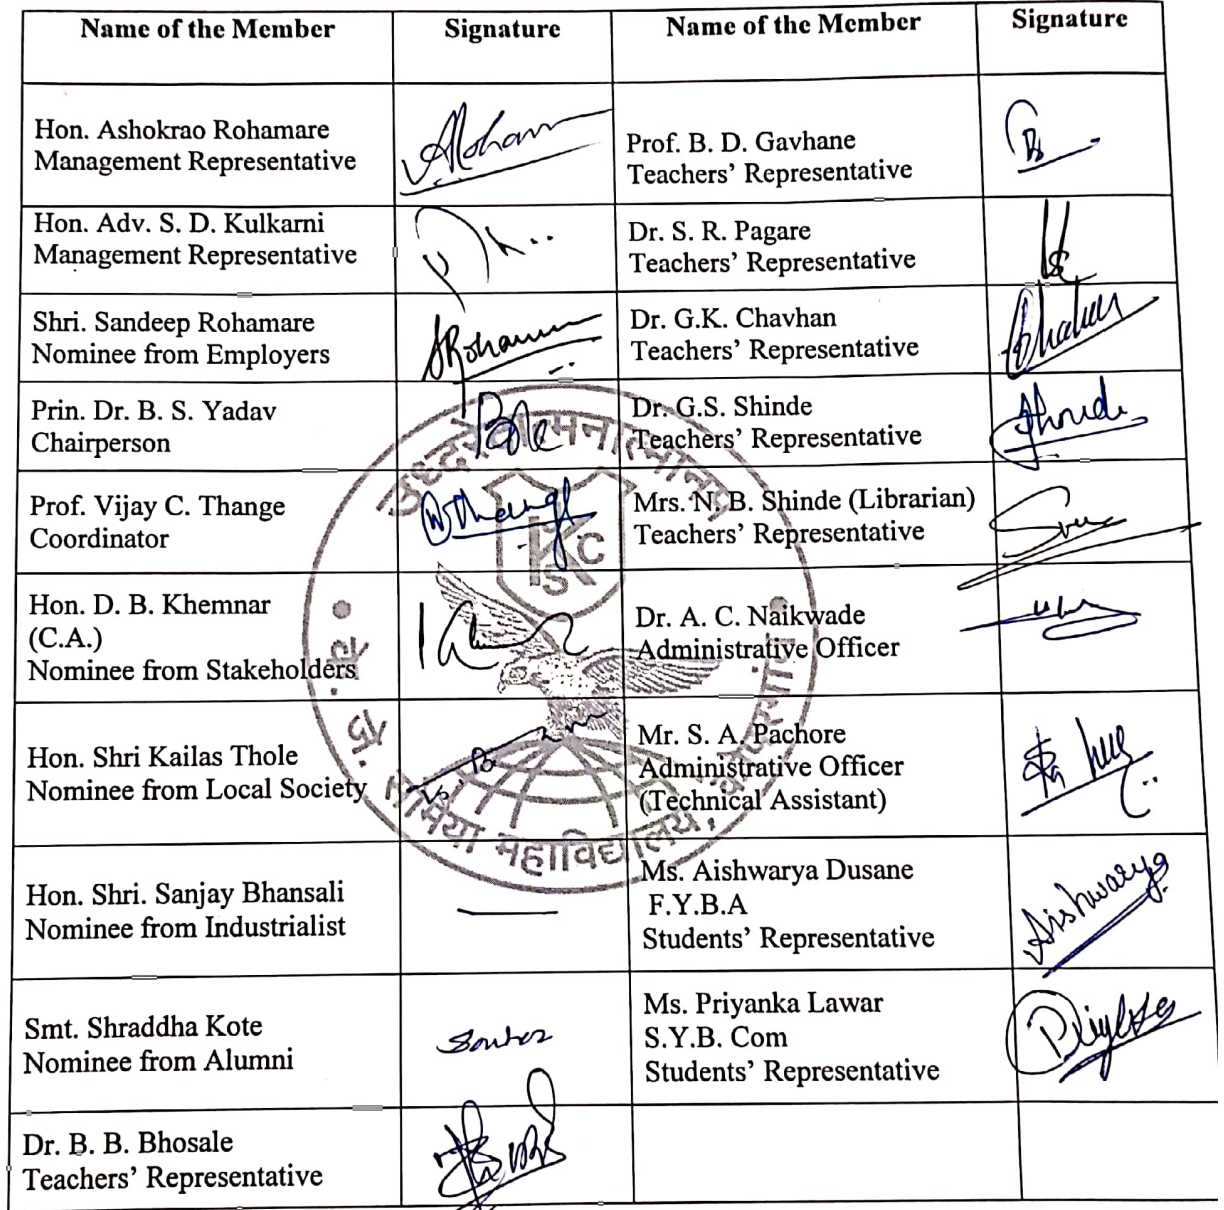 Name of the Member
Signature
Name of the Member
Signature
Hon. Ashokrao Rohamare
Management Representative
Prof. B. D. Gavhane
Teachers' Representative
Hon. Adv. S. D. Kulkarni
Management Representative
Dr. S. R. Pagare
Teachers' Representative
Shri. Sandeep Rohamare
Nominee from Employers
Dr. G.K. Chavhan
Teachers' Representative
Prin. Dr. B. S. Yadav
Chairperson
Dr. G.S. Shinde
Teachers' Representative
Prof. Vijay C. Thange
Coordinator
Mrs. N. B. Shinde (Librarian)
Teachers' Representative
Hon. D. B. Khemnar
(C.A.)
Nominee from Stakeholders
Dr. A. C. Naikwade
Administrative Officer
Hon. Shri Kailas Thole
Nominee from Local Society
Mr. S. A. Pachore
Administrative Officer
(Technical Assistant)
Hon. Shri. Sanjay Bhansali
Nominee from Industrialist
Ms. Aishwarya Dusane
F.Y.B.A
Students' Representative
Aishwarya
Smt. Shraddha Kote
Nominee from Alumni
Ms. Priyanka Lawar
S.Y.B. Com
Students' Representative
Dr. B. B. Bhosale
Teachers' Representative
K
S C
महाविद्यालय